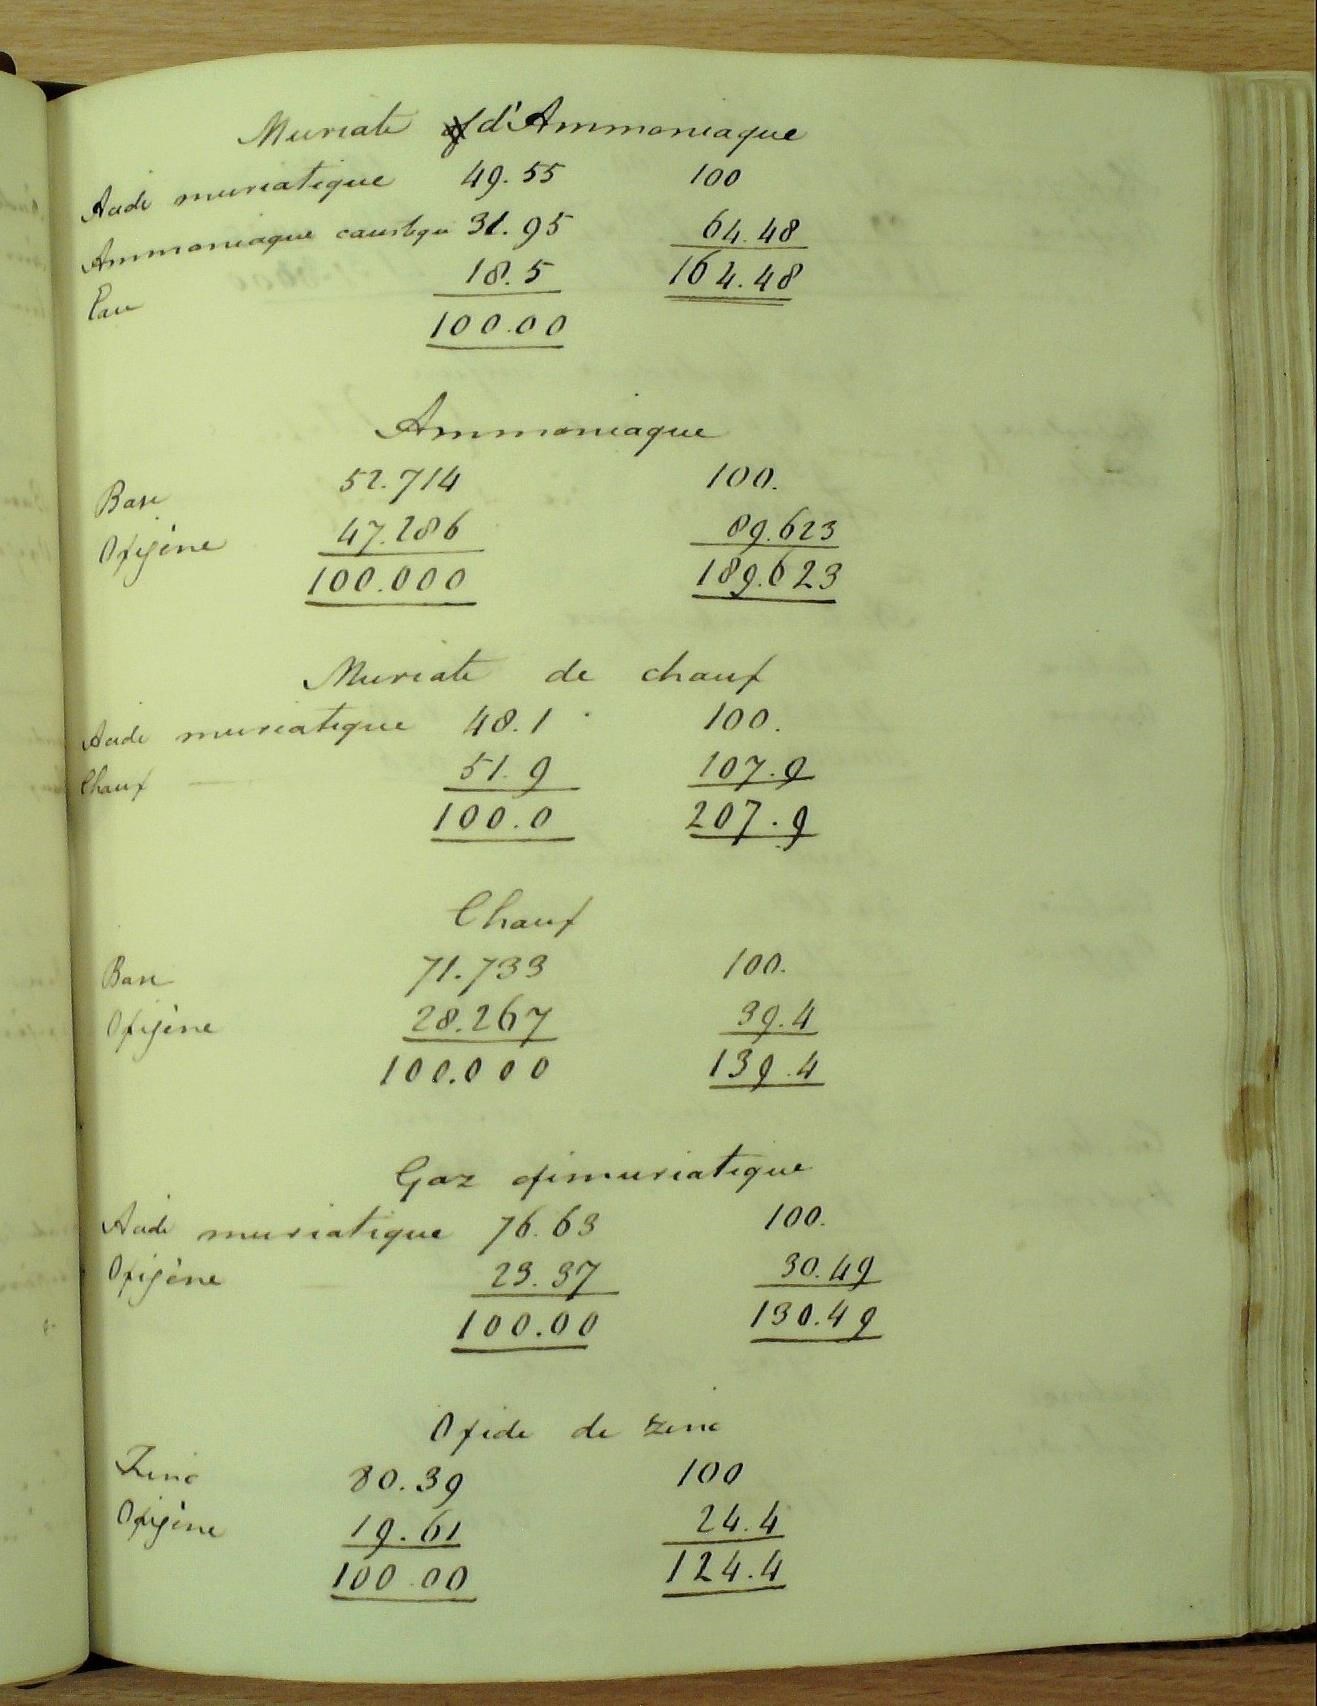 Muriate d'Ammoniaque
Acide muriatique 49.55 100
Ammoniaque caustiqu 31.95 64.48
Eau 18.5 164.48
100.00
Ammoniaque
Base 52.714 100.
Oxigène 47.286 89.623
100.000 189.623
Muriate de chaux
Acide muriatique 48.1 100.
Chaux 51.9 107.9
100.0 207.9
Chaux
Base 71.733 100.
Oxigène 28.267 39.4
100.000 139.4
Gaz oximuriatique
Acide muriatique 76.63 100.
Oxigène 23.37 30.49
100.00 130.49
Oxide de zinc
Zinc 80.39 100
Oxigène 19.61 24.4
100.00 124.4